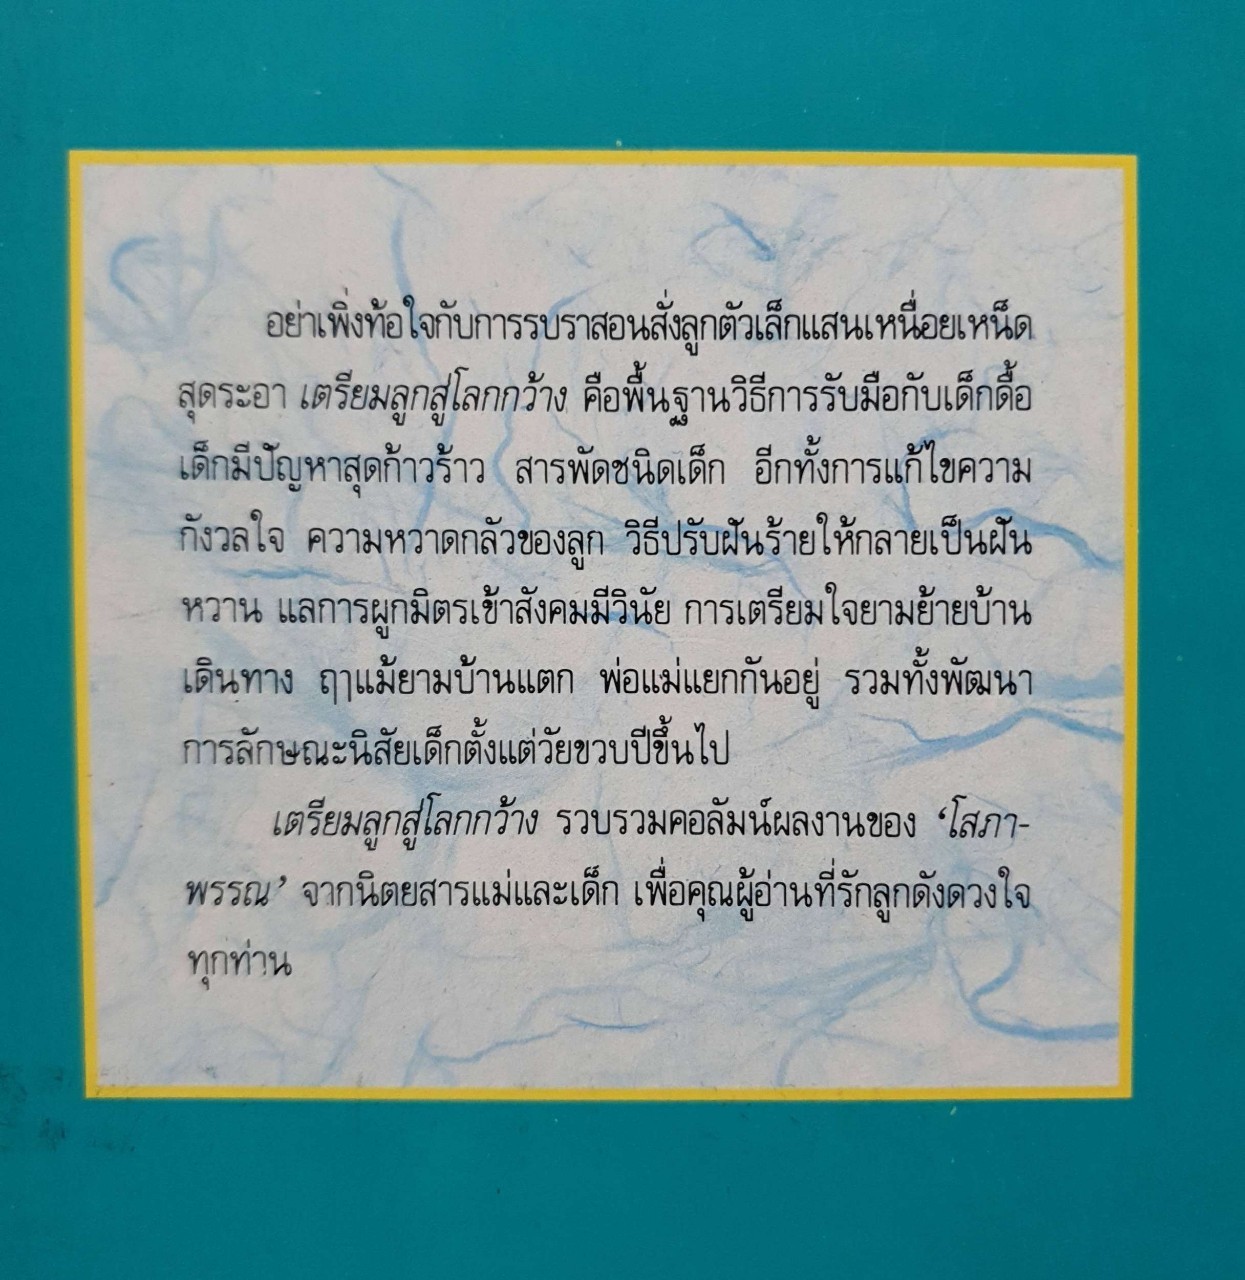 อย่าเพิ่งท้อใจกับการรบราสอนสั่งลูกตัวเล็กแสนเหนื่อยเหน็ด
สุดระอา เตรียมลูกสู่โลกกว้าง คือพื้นฐานวิธีการรับมือกับเด็กดื้อ
เด็กมีปัญหาสุดก้าวร้าว สารพัดชนิดเด็ก อีกทั้งการแก้ไขความ
กังวลใจ ความหวาดกลัวของลูก วิธีปรับฝันร้ายให้กลายเป็นฝัน
หวาน แลการผูกมิตรเข้าสังคมมีวินัย การเตรียมใจยามย้ายบ้าน
เดินทาง ฤๅแม้ยามบ้านแตก พ่อแม่แยกกันอยู่ รวมทั้งพัฒนา
การลักษณะนิสัยเด็กตั้งแต่วัยขวบปีขึ้นไป
เตรียมลูกสู่โลกกว้าง รวบรวมคอลัมน์ผลงานของ ‘โสภา-
พรรณ’ จากนิตยสารแม่และเด็ก เพื่อคุณผู้อ่านที่รักลูกดังดวงใจ
ทุกท่าน